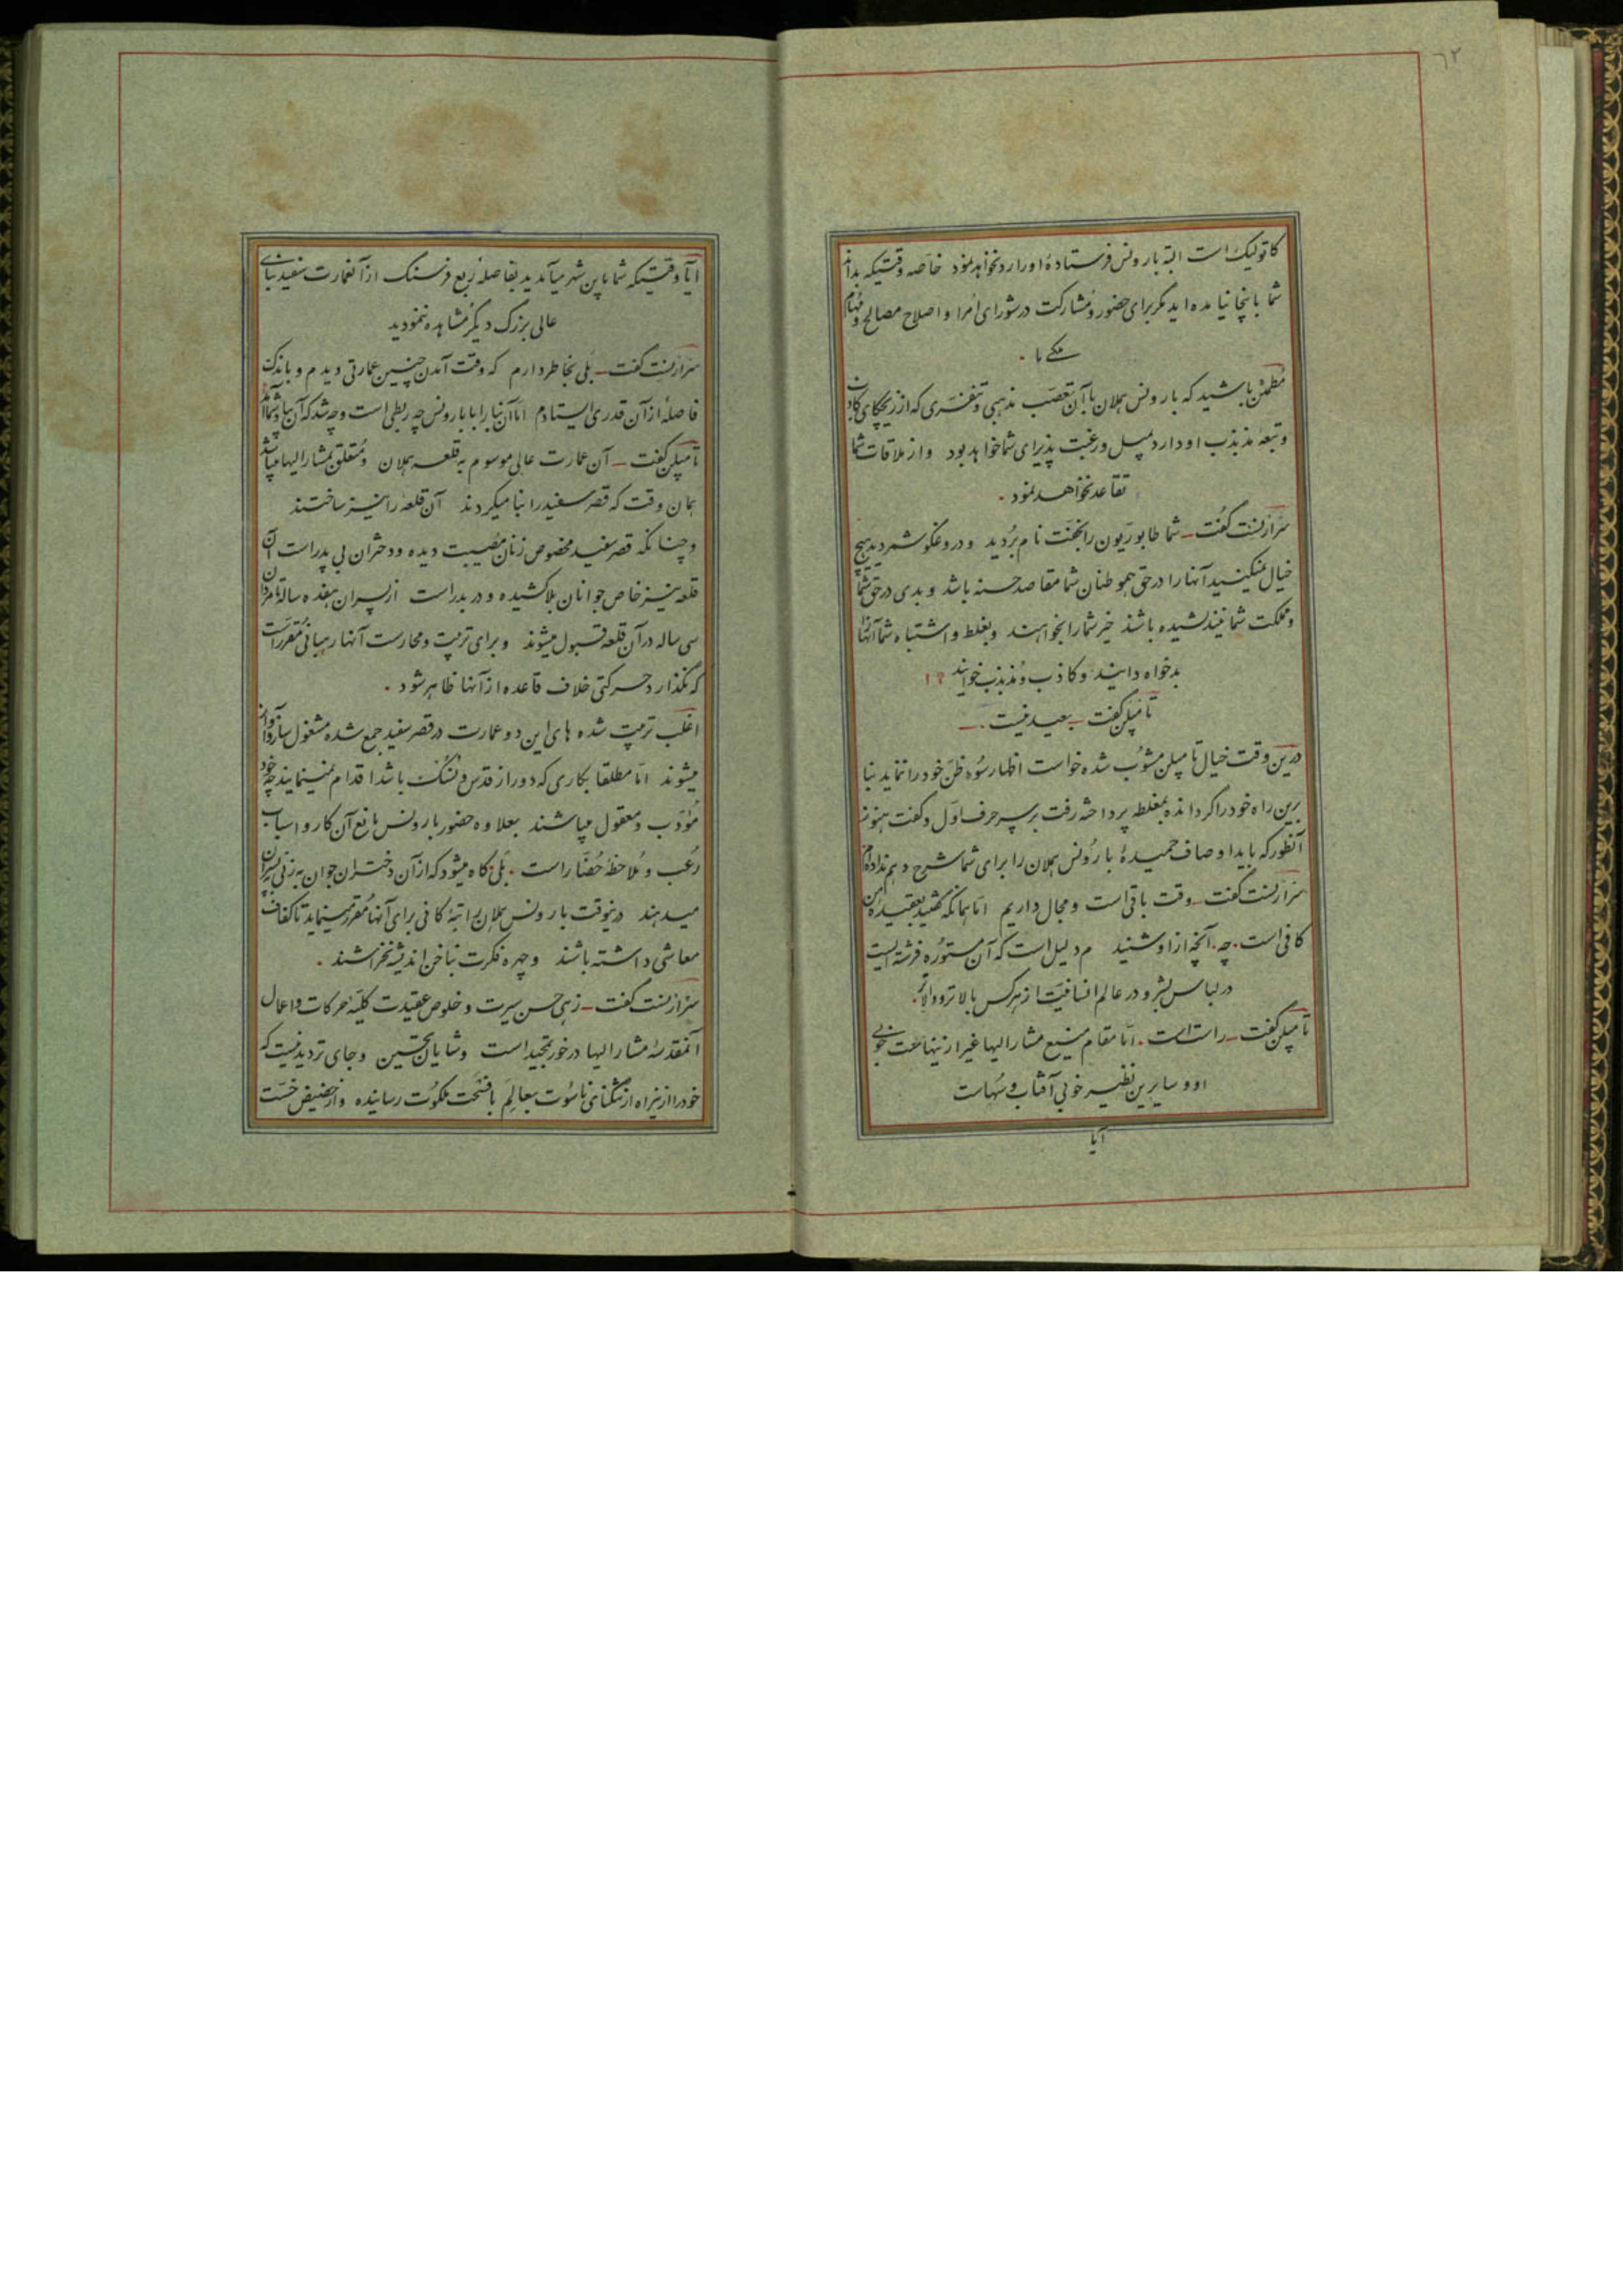 ٦٢
کاتولیک است البته بارونس فرستادهٔ او را رد نخواهد نمود خاصه وقتیکه بداند
شما باینجا نیامده اید مگر برای حضور و مشارکت در شورای اُمرا و اصلاح مصالح و مهام
ملکی ما .
مطمئن باشید که بارونس هملان با آن تعصّب مذهبی و تنفّری که از ریچکای
و تبعهٔ مذبذب او دارد بمیل و رغبت پذیرای شما خواهد بود و از ملاقات شما
تقاعد نخواهد نمود .
سرارنست گفت ــ شما طابوریون را بخفّت نام بُردید و دروغگو شمردید هیچ
خیال نمیکنید آنها را در حق هموطنان شما مقاصد حسنه باشد و بدی در حق شما
و مملکت شما نیندیشیده باشند خیر شما را بخواهند و بغلط و اشتباه شما آنها را
بدخواه دانید و کاذب و مُذبذب خوانید ؟!
تامپلن گفت ــ بعید نیست . ــ
درین وقت خیال تامپلن مشوُب شده خواست اظهار سُوء ظنّ خود را ننماید بنا
برین راه خود را گردانده بمغلطه پرداخته رفت بر سر حرف اوّل و گفت هنوز
آنطور که باید اوصاف حمیدهٔ بارُونس هملان را برای شما شرح دهم نداده‌ام
سرارنست گفت ــ وقت باقی است و مجال داریم امّا همانکه گفتید بعقیدهٔ من
کافی است . چه . آنچه از او شنیدم دلیل است که آن مستوُره فرشته ایست
در لباس بشر و در عالم انسانیّت از هرکس بالاتر و والاتر .
تامپلن گفت ــ راست است . امّا مقام منیع مشار الیها غیر از اینهاست خوبی
او و سایرین نظیر خوبی آفتاب و سُهاست
آیا
آیا وقتیکه شما باین شهر میآمدید بفاصلهٔ رُبع فرسنک از آنعمارت سفید بنای
عالی بزرک دیگر مُشاهده ننمودید
سرارنست گفت ــ بلی بخاطر دارم که وقت آمدن چنین عمارتی دیدم و باندک
فاصله از آن قدری ایستادم امّا آن بنا را با بارونس چه ربطی است و چه شد که آن بیاد شما آمد
تامپلن گفت ــ آن عمارت عالی موسوم به قلعه هملان و مُتعلق بمشار الیها میباشد
همان وقت که قصر سفید را بنا میکردند آن قلعه را نیز ساختند
و چنانکه قصر سفید مخصوص زنان مُصیبت دیده و دختران بی پدر است آن
قلعه نیز خاص جوانان بلا کشیده و دربدر است از پسران هفده ساله تا مردان
سی ساله در آن قلعه قبول میشوند و برای تربیت و محارست آنها رُهبانی مُقرر است
که نگذارد حرکتی خلاف قاعده از آنها ظاهر شود .
اغلب تربیت شده های این دو عمارت در قصر سفید جمع شده مشغول ساز و آواز
میشوند امّا مطلقا بکاری که دور از قدس و نُسُک باشد اقدام نمینمایند چه خود
مُؤدّب و معقول میباشند بعلاوه حضور بارونس مانع آن کار و اسباب
رُعب و مُلاحظهٔ حُضّار است . بَلی گاه میشود که از آن دختران جوان بزنی پسران
میدهند درینوقت بارونس هملان راتبهٔ کافی برای آنها مُقرر مینماید تا کفاف
معاشی داشته باشند و چهره فکرت بناخن اندیشه نخراشند .
سرارنست گفت ــ زهی حسن سیرت و خلوص عقیدت کلیّهٔ حرکات و اعمال
آنمقدسهٔ مشار الیها در خور تمجید است و شایان تحسین و جای تردید نیست که
خود را از نیراه از تنگنای ناسُوت بعالَم با فُسحَت ملکوُت رسانیده و از حضیض خسّت